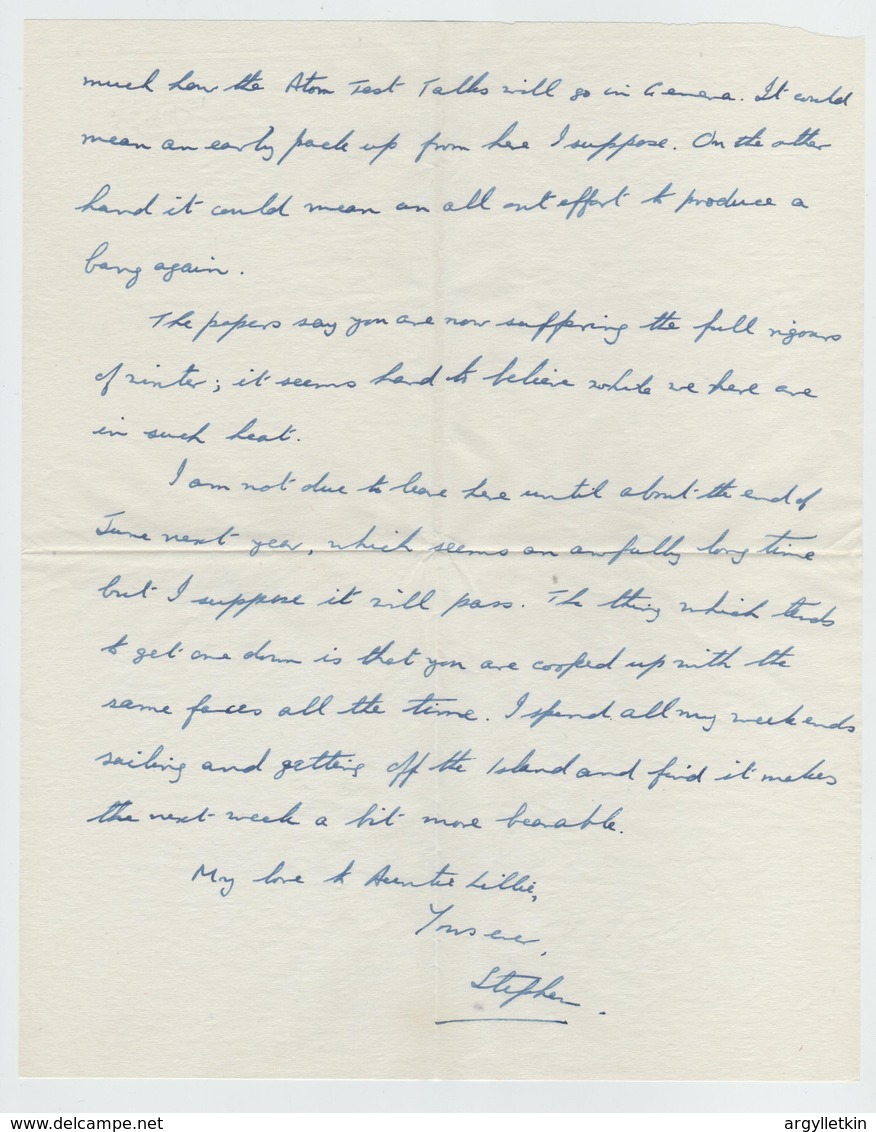 much how the Atom Test Talks will go in Geneva. It could
mean an early pack up from here I suppose. On the other
hand it could mean an all out effort to produce a
bang again.
The papers say you are now suffering the full rigours
of winter; it seems hard to believe while we here are
in such heat.
I am not due to leave here until about the end of
June next year, which seems an awfully long time
but I suppose it will pass. The thing which tends
to get one down is that you are cooped up with the
same faces all the time. I spend all my weekends
sailing and getting off the Island and find it makes
the next week a bit more bearable.
My love to Auntie Lillie,
Yours ever,
Stephen.
delcampe.net
argylletkin